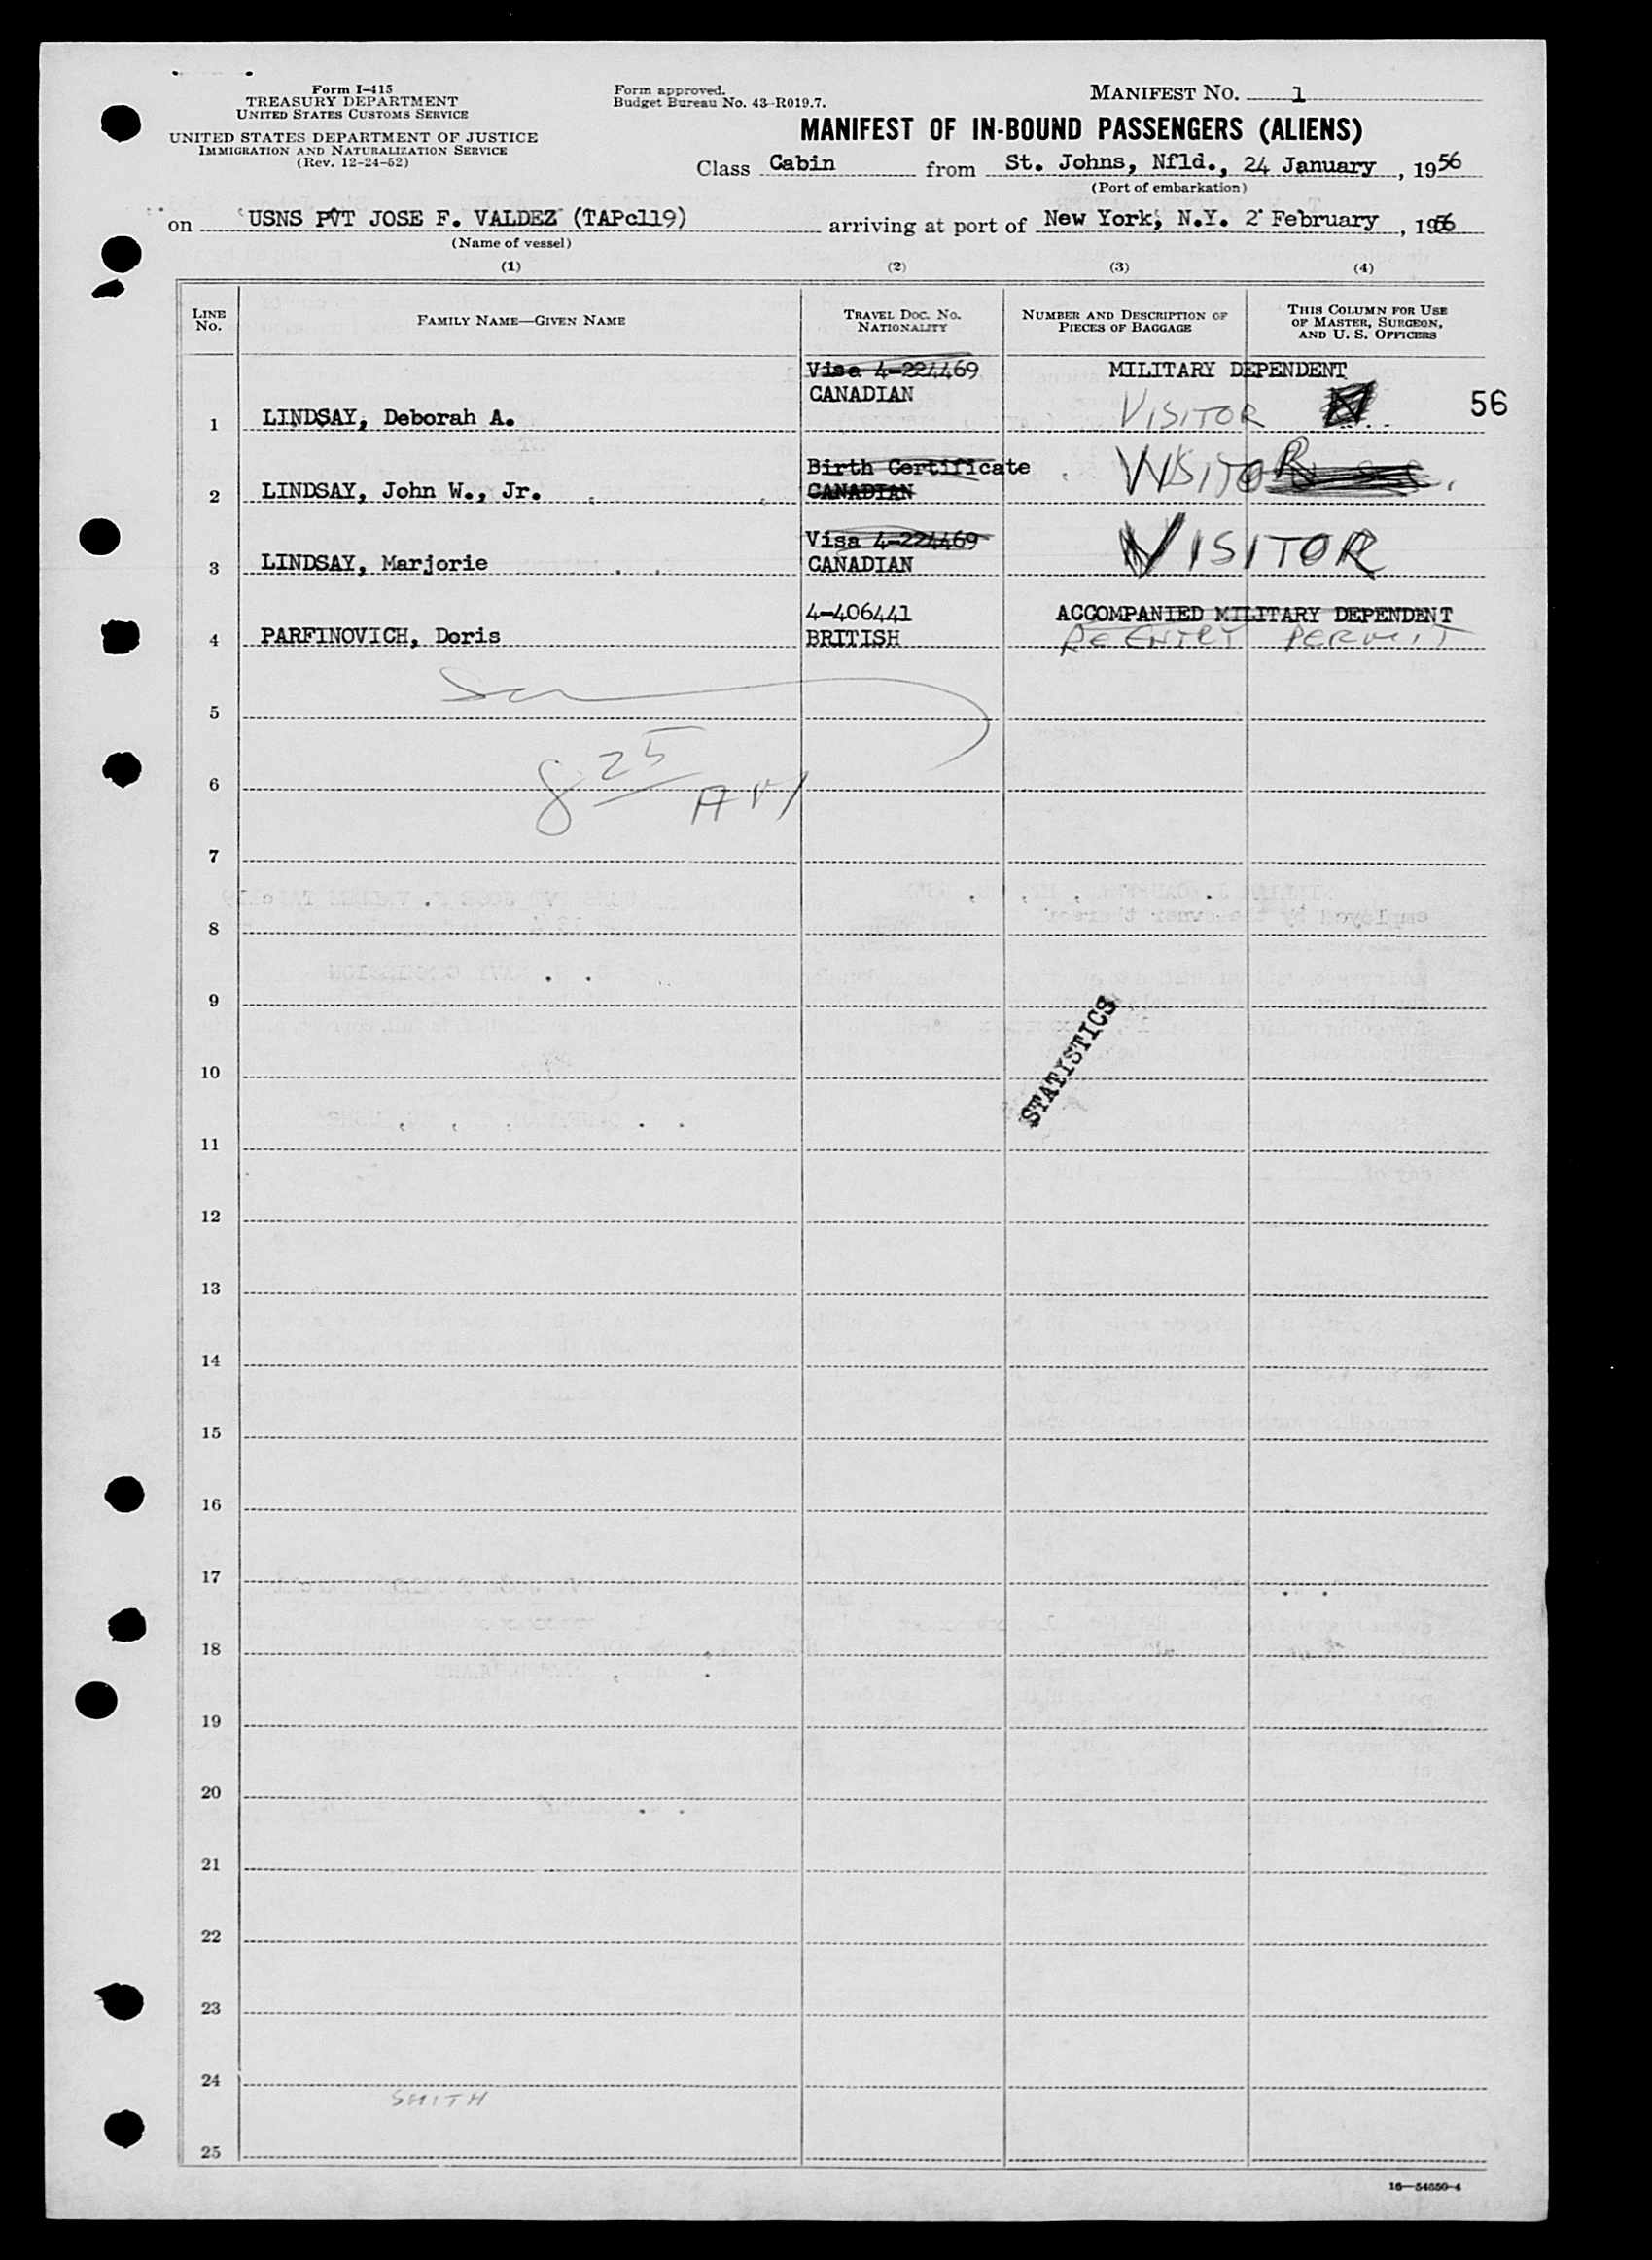 Form I-415
TREASURY DEPARTMENT
UNITED STATES CUSTOMS SERVICE
UNITED STATES DEPARTMENT OF JUSTICE
IMMIGRATION AND NATURALIZATION SERVICE
(Rev. 12-24-52)
Form approved.
Budget Bureau No. 43-R019.7.
MANIFEST NO. 1
MANIFEST OF IN-BOUND PASSENGERS (ALIENS)
Class Cabin from St. Johns, Nfld., 24 January, 1956
(Port of embarkation)
on USNS PVT JOSE F. VALDEZ (TAPc119) arriving at port of New York, N.Y. 2 February, 1956
(Name of vessel)
(1) (2) (3) (4)
LINE No. FAMILY NAME—GIVEN NAME TRAVEL DOC. NO. NATIONALITY NUMBER AND DESCRIPTION OF PIECES OF BAGGAGE THIS COLUMN FOR USE OF MASTER, SURGEON, AND U. S. OFFICERS
Visa 4-224469 MILITARY DEPENDENT
CANADIAN
1 LINDSAY, Deborah A. VISITOR 56
Birth Certificate
2 LINDSAY, John W., Jr. CANADIAN VISITOR
Visa 4-224469
3 LINDSAY, Marjorie CANADIAN VISITOR
4-406441 ACCOMPANIED MILITARY DEPENDENT
4 PARFINOVICH, Doris BRITISH REENTRY PERMIT
5
8 25 AM
6
7
8
9
STATISTICS
10
11
12
13
14
15
16
17
18
19
20
21
22
23
24
SMITH
25
16—54650-4